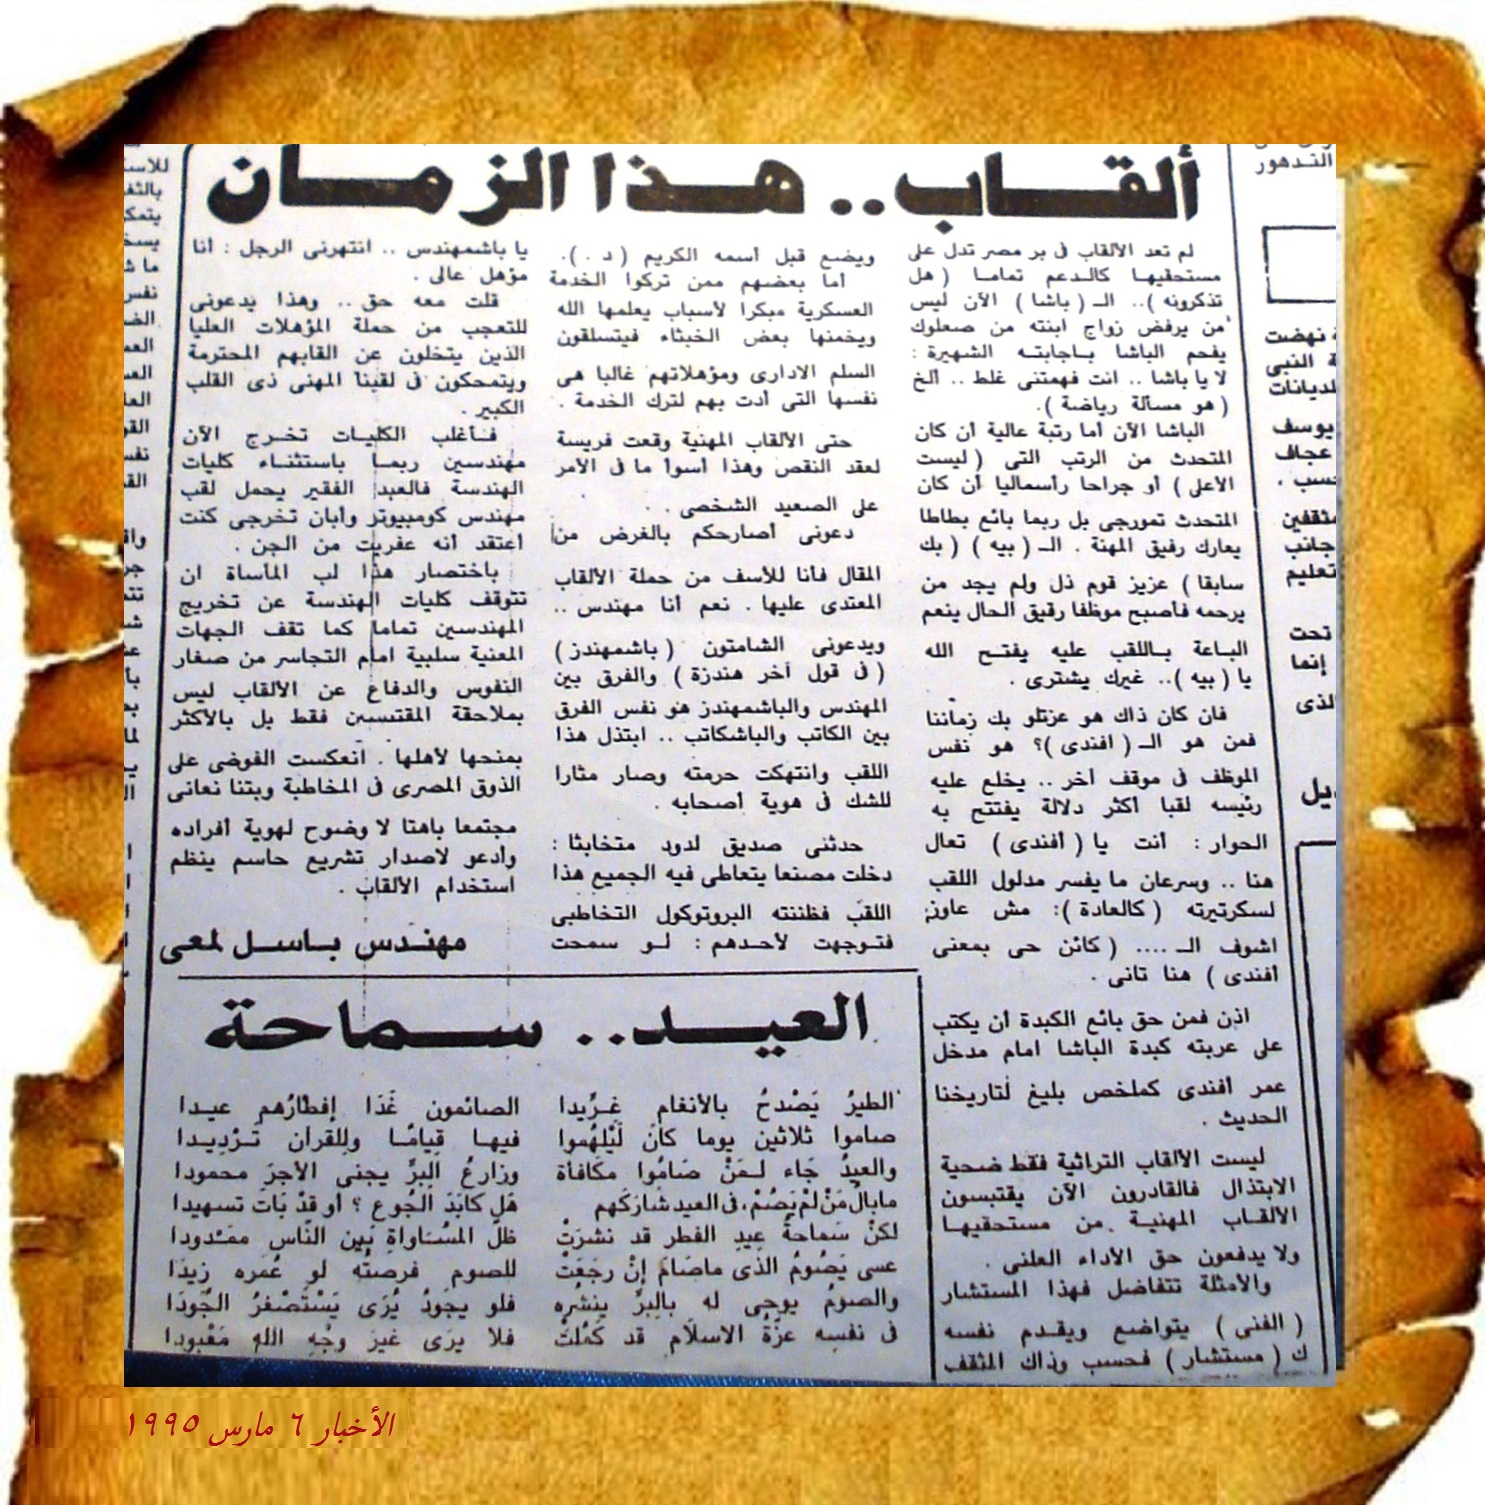 ألقاب.. هذا الزمان
لم تعد الألقاب فى بر مصر تدل على
مستحقيها كالدعم تماما ( هل
تذكرونه ).. الـ ( باشا ) الآن ليس
من يرفض زواج ابنته من صعلوك
يفحم الباشا باجابته الشهيرة :
لا يا باشا .. انت فهمتنى غلط .. ألخ
( هو مسألة رياضة ).
الباشا الآن أما رتبة عالية أن كان
المتحدث من الرتب التى ( ليست
الأعلى ) أو جراحا رأسماليا أن كان
المتحدث تمورجى بل ربما بائع بطاطا
يعارك رفيق المهنة . الـ ( بيه ) ( بك
سابقا ) عزيز قوم ذل ولم يجد من
يرحمه فأصبح موظفا رقيق الحال ينعم
الباعة باللقب عليه يفتح الله
يا ( بيه ).. غيرك يشترى .
فان كان ذاك هو عزتلو بك زماننا
فمن هو الـ ( افندى )؟ هو نفس
الموظف فى موقف آخر .. يخلع عليه
رئيسه لقبا أكثر دلالة يفتتح به
الحوار : أنت يا ( أفندى ) تعال
هنا .. وسرعان ما يفسر مدلول اللقب
لسكرتيرته ( كالعادة ): مش عاوز
اشوف الـ .... ( كائن حى بمعنى
أفندى ) هنا تانى .
اذن فمن حق بائع الكبدة أن يكتب
على عربته كبدة الباشا امام مدخل
عمر أفندى كملخص بليغ لتاريخنا
الحديث .
ليست الألقاب التراثية فقط ضحية
الابتذال فالقادرون الآن يقتبسون
الألقاب المهنية من مستحقيها
ولا يدفعون حق الأداء العلنى .
والأمثلة تتفاضل فهذا المستشار
( الفنى ) يتواضع ويقدم نفسه
ك ( مستشار ) فحسب وذاك المثقف
ويضع قبل أسمه الكريم ( د . ).
أما بعضهم ممن تركوا الخدمة
العسكرية مبكرا لأسباب يعلمها الله
ويخمنها بعض الخبثاء فيتسلقون
السلم الادارى ومؤهلاتهم غالبا هى
نفسها التى أدت بهم لترك الخدمة .
حتى الألقاب المهنية وقعت فريسة
لعقد النقص وهذا أسوأ ما فى الأمر
على الصعيد الشخصى . .
دعونى أصارحكم بالغرض من
المقال فأنا للأسف من حملة الألقاب
المعتدى عليها . نعم أنا مهندس ..
ويدعونى الشامتون ( باشمهندز )
( فى قول آخر هندزة ) والفرق بين
المهندس والباشمهندز هو نفس الفرق
بين الكاتب والباشكاتب .. ابتذل هذا
اللقب وانتهكت حرمته وصار مثارا
للشك فى هوية أصحابه .
حدثنى صديق لدود متخابثا :
دخلت مصنعا يتعاطى فيه الجميع هذا
اللقب فظننته البروتوكول التخاطبى
فتوجهت لأحدهم : لو سمحت
يا باشمهندس .. انتهرنى الرجل : أنا
مؤهل عالى .
قلت معه حق .. وهذا يدعونى
للتعجب من حملة المؤهلات العليا
الذين يتخلون عن القابهم المحترمة
ويتمحكون فى لقبنا المهنى ذى القلب
الكبير .
فأغلب الكليات تخرج الآن
مهندسين ربما باستثناء كليات
الهندسة فالعبد الفقير يحمل لقب
مهندس كومبيوتر وأبان تخرجى كنت
أعتقد أنه عفريت من الجن .
باختصار هذا لب المأساة ان
تتوقف كليات الهندسة عن تخريج
المهندسين تماما كما تقف الجهات
المعنية سلبية امام التجاسر من صغار
النفوس والدفاع عن الألقاب ليس
بملاحقة المقتبسين فقط بل بالأكثر
بمنحها لأهلها . انعكست الفوضى على
الذوق المصرى فى المخاطبة وبتنا نعانى
مجتمعا باهتا لا وضوح لهوية أفراده
وأدعو لاصدار تشريع حاسم ينظم
استخدام الألقاب .
مهندس باسل لمعى
العيد.. سماحة
الطيرُ يَصْدحُ بالأنغام غرِّيدا الصائمون غَدَا إفطارُهم عيدا
صاموا ثلاثين يوما كانَ لَيْلهُموا فيها قِيامًا وللقرآن تَرْدِيدا
والعيدُ جَاء لمَنْ صَامُوا مكافأة وزارعُ البِرِّ يجنى الأجرَ محمودا
مابالُ مَنْ لمْ يَصُمْ، فى العيد شَارَكَهم هَل كابَدَ الجُوع ؟ أو قدْ بَاتَ تسهيدا
لكنْ سَماحةُ عِيدِ الفطر قد نشرَتْ ظلَّ المسَاواةِ بَين النَّاسِ ممَدودا
عسى يَصُومُ الذى ماصَامَ إنْ رجَعَتْ للصوم فرصتُه لو عُمره زِيدَا
والصومُ يوحِى له بالبِرِّ ينشره فلو يجودُ يُرَى يَسْتَصْغرُ الجُودَا
فى نفسِه عزَّةُ الاسلَام قد كَمُلتْ فلا يرَى غيرَ وجْهِ اللهِ مَعْبودا
التدهور
نهضت
ة النبى
لديانات
يوسف
عجاف
حسب .
مثقفين
جانب
تعليم
تحت
إنما
لذى
ديل
الأخبار ٦ مارس ١٩٩٥